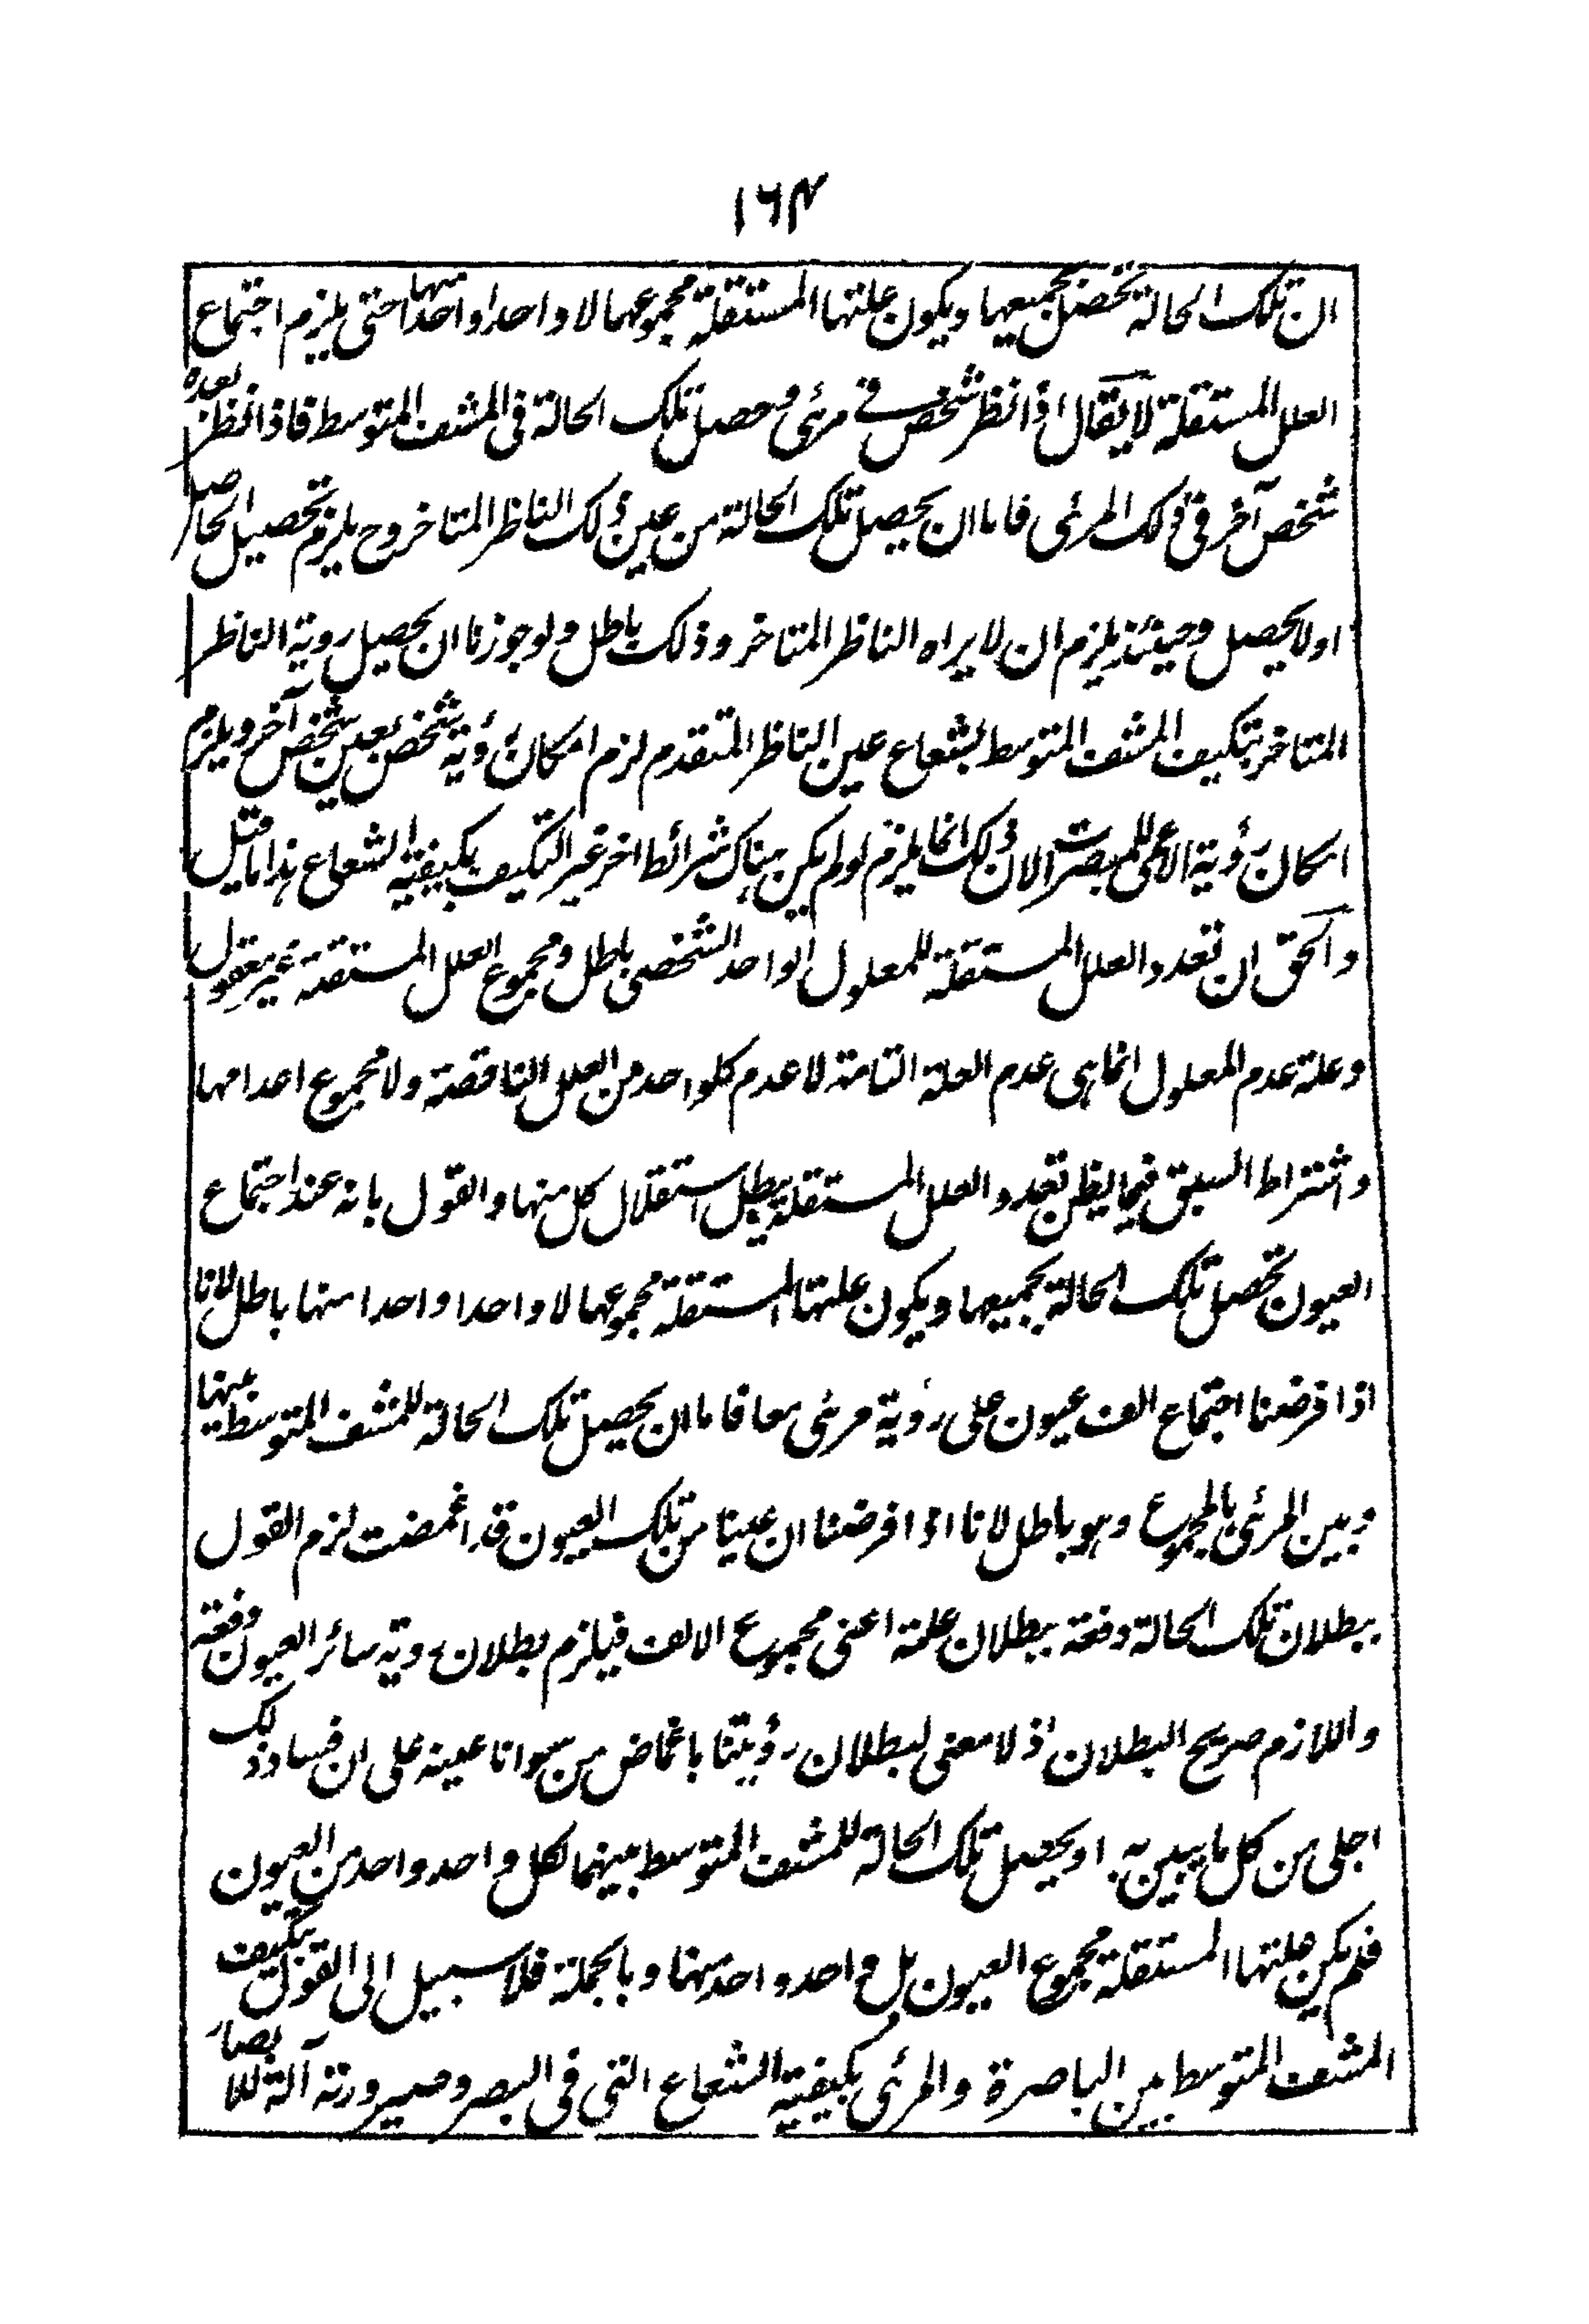 ١٦٤
ان تلك الحالة تحصل بجميعها ويكون علتها المستقلة مجموعها لا واحدا واحدا منها حتى يلزم اجتماع
العلل المستقلة لا يقال اذا نظر شخص فى مرئى وحصل تلك الحالة فى المشف المتوسط فاذا نظر بعده
شخص آخر فى ذلك المرئى فاما ان يحصل تلك الحالة من عين ذلك الناظر المتاخر وح يلزم تحصيل الحاصل
او لا يحصل وحينئذ يلزم ان لا يراه الناظر المتاخر وذلك باطل ولو جوزنا ان يحصل روية الناظر
المتاخر بتكيف المشف المتوسط بشعاع عين الناظر المتقدم لزم امكان رؤية شخص بعين شخص آخر ويلزم
امكان رؤية الاعمى للمبصرات لان ذلك انما يلزم لو لم يكن هناك شرائط اخر غير التكيف بكيفية الشعاع هذا ما قيل
والحق ان تعدد العلل المستقلة للمعلول الواحد الشخصى باطل ومجموع العلل المستقلة غير معقول
وعلة عدم المعلول انما هى عدم العلة التامة لا عدم كلواحد من العلل الناقصة ولا مجموع اعدامها
واشتراط السبق فيما يظن تعدد العلل المستقلة يبطل استقلال كل منها والقول بانه عند اجتماع
العيون تحصل تلك الحالة بجميعها ويكون علتها المستقلة مجموعها لا واحدا واحدا منها باطل لانا
اذا فرضنا اجتماع الف عيون على رؤية مرئى معا فاما ان يحصل تلك الحالة للمشف المتوسط بينها
وبين المرئى بالمجموع وهو باطل لانا اذا فرضنا ان عينا من تلك العيون قد اغمضت لزم القول
ببطلان تلك الحالة دفعة ببطلان علمة اعنى مجموع الالف فيلزم بطلان روية سائر العيون دفعة
واللازم صريح البطلان اذ لا معنى لبطلان رؤيتنا باغماض من سوانا عينه على ان فساد ذلك
اجلى من كل ما يبين به او يحصل تلك الحالة للمشف المتوسط بينهما لكل واحد واحد من العيون
فلم يكن علتها المستقلة مجموع العيون بل واحد واحد منها وبالجملة فلا سبيل الى القول بتكيف
المشف المتوسط بين الباصرة والمرئى بكيفية الشعاع التى فى البصر وصيرورته آلة للابصار